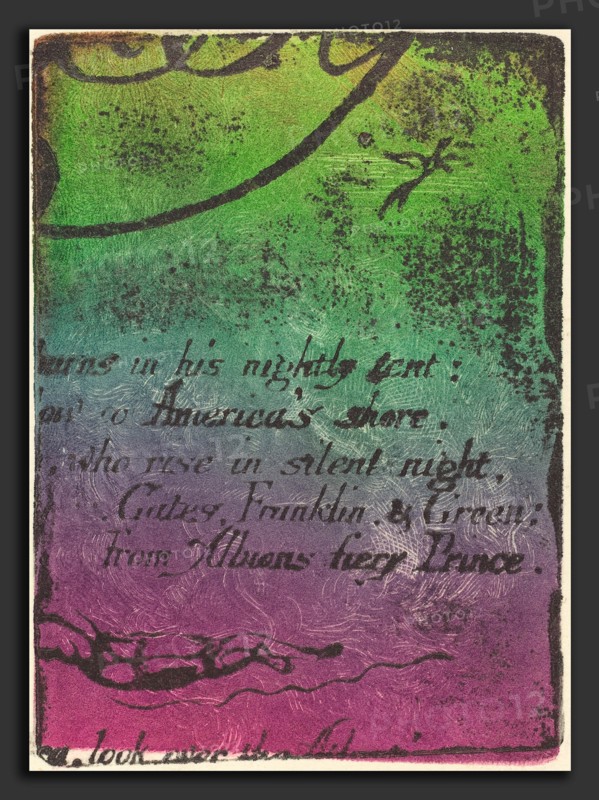 burns in his nightly tent:
to America's shore.
, who rise in silent night,
Gates, Franklin, & Green;
from Albions fiery Prince.
look over the